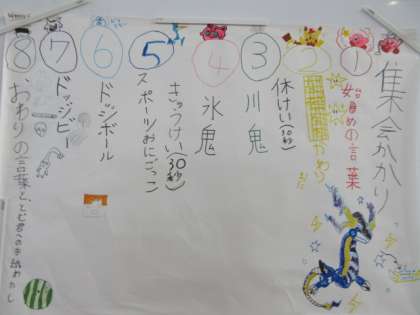 集会かかり
① 始めの言葉
②
休けい(30秒)
③ 川鬼
④ 氷鬼
きゅうけい(30秒)
⑤ スポーツおにごっこ
⑥ ドッジボール
⑦ ドッジビー
⑧ おわりの言葉と